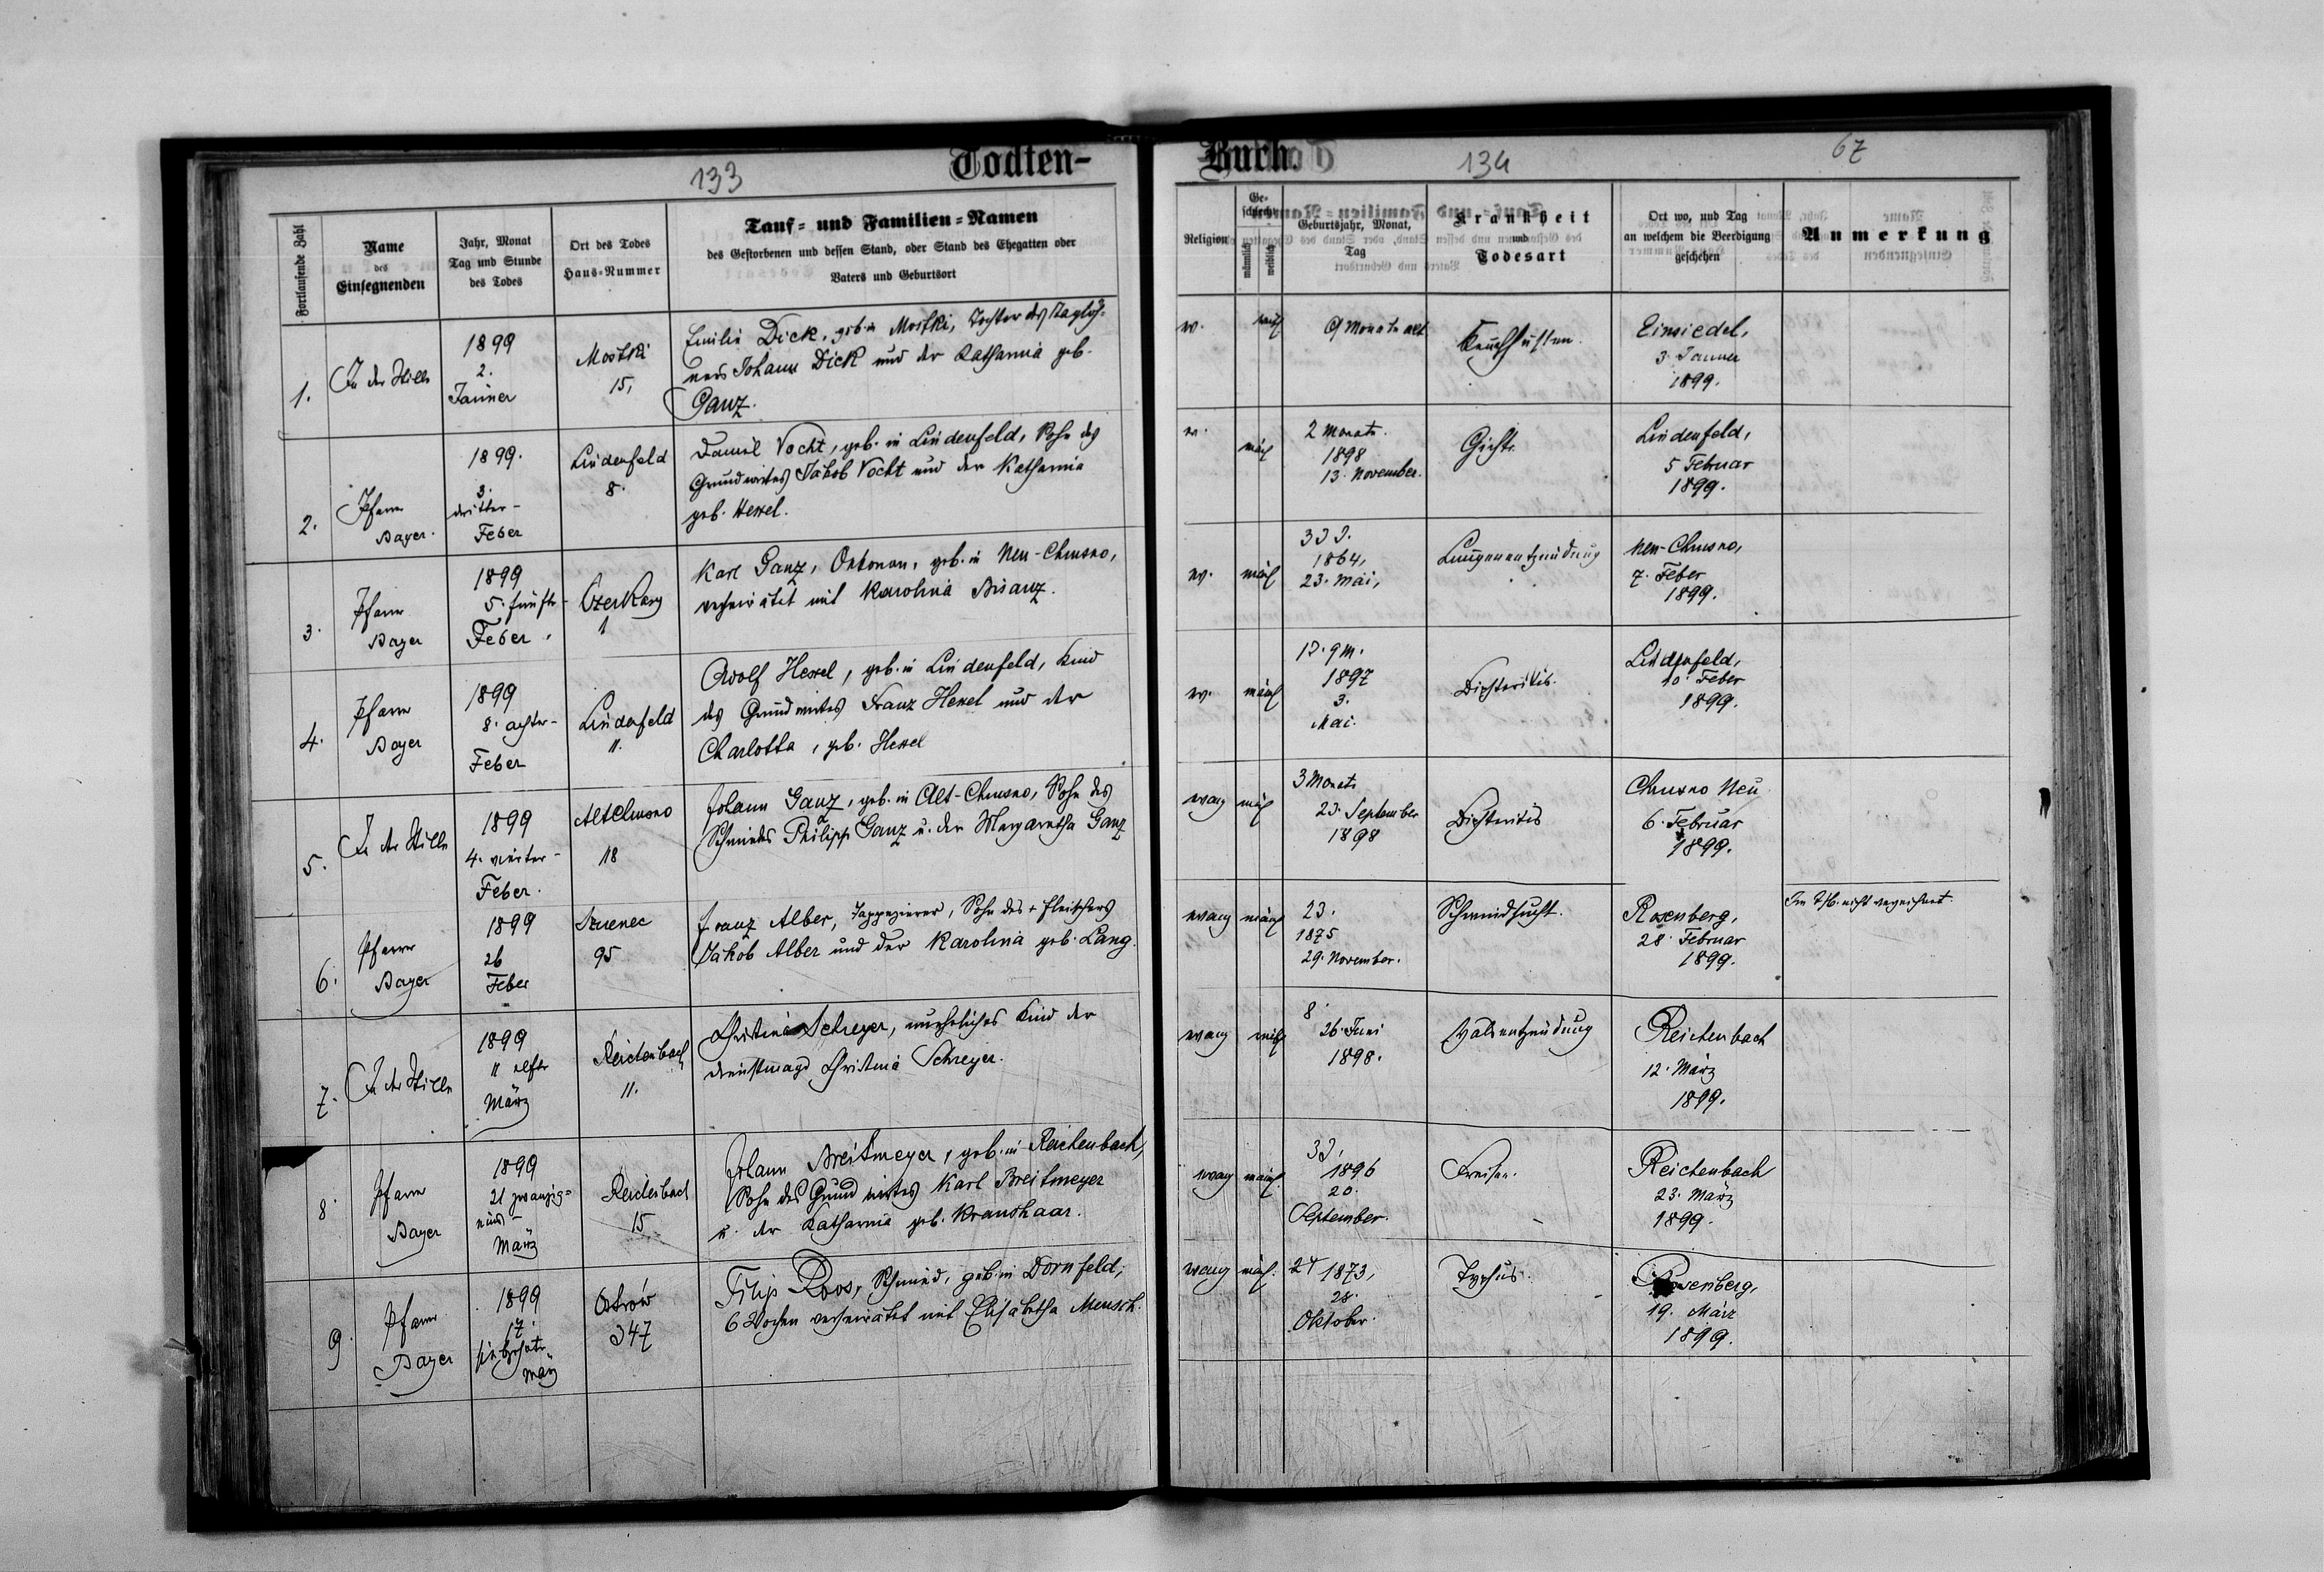 133
Todten-
Buch.
134
67
Fortlaufende Zahl
Name
des
Einsegnenden
Jahr, Monat
Tag und Stunde
des Todes
Ort des Todes
Haus-Nummer
Tauf- und Familien-Namen
des Gestorbenen und dessen Stand, oder Stand des Ehegatten oder
Vaters und Geburtsort
Religion
Ge-
schlecht
männlich
weiblich
Geburtsjahr, Monat,
Tag
Krankheit
und
Todesart
Ort wo, und Tag
an welchem die Beerdigung
geschehen
Anmerkung
1.
In der Stille
1899
2.
Jänner
Mostki
15,
Emilie Dick, geb. in Mostki, Tochter des Taglöh-
ners Johann Dick und der Katharina geb.
Ganz.
ev.
weibl
9 Monate alt
Keuchhusten.
Einsiedel,
3 Jänner
1899.
2.
Pfarrer
Bayer.
1899.
3.
dritter-
Feber
Lindenfeld
8.
Daniel Vocht, geb. in Lindenfeld, Sohn des
Grundwirtes Jakob Vocht und der Katharina
geb. Hexel.
ev.
mänl
2 Monate.
1898
13. November.
Gichte
Lindenfeld,
5 Februar
1899.
3.
Pfarrer
Bayer
1899
5. fünfter-
Feber.
Czerkasy
1
Karl Ganz, Oekonom, geb. in Neu-Chrusno,
verheiratet mit Karolina Bisanz.
ev.
mänl
33 J.
1864,
23. Mai,
Lungenentzündung
Neu-Chrusno,
7. Feber
1899.
4.
Pfarrer
Bayer
1899
8. achter-
Feber
Lindenfeld
11.
Adolf Hexel, geb. in Lindenfeld, Kind
des Grundwirtes Franz Hexel und der
Charlotta, geb. Hexel
ev.
mänl
1 J. 9 M.
1897
3.
Mai.
Dichteritis.
Lindenfeld,
10. Feber
1899.
5.
In der Stille
1899
4. vierter-
Feber.
AltChrusno
18
Johann Ganz, geb. in Alt-Chrusno, Sohn des
Schmiedes Philipp Ganz u. der Margaretha Ganz
evang
mänl
3 Monate
23. September
1898
Dichteritis
Chrusno Neu
6. Februar
1899.
6.
Pfarrer
Bayer
1899
26
Feber
95
Franz Alber, Tappezierer, Sohn des + Fleischers
Jakob Alber und der Karolina geb. Lang.
evang
mänl
23.
1875
29. November.
Schwindsucht.
Rosenberg,
28. Februar
1899.
Im nicht verzeichnet.
7.
In der Stille
1899
11 elfter
März
Reichenbach
11.
Christina Schreyer, uneheliches Kind der
Dienstmagd Christina Schreyer.
evang
weibl
8.
26. Juni
1898.
Halsentzündung
Reichenbach
12. März
1899.
8.
Pfarrer
Bayer
1899
21 zwanzig-
eins-
März
Reichenbach
15.
Johann Breitmeyer, geb. in Reichenbach,
Sohn des Grundwirtes Karl Breitmeyer
u. der Katharina geb. Kraushaar.
evang
mänl.
3 J.
1896
20.
September.
Fraisen.
Reichenbach
23. März
1899.
9.
Pfarrer
Bayer
1899
17.
siebzehnte-
März
Ostrów
347
Filip Roos, Schmied, geb. in Dornfeld,
6 Wochen verheiratet mit Elisabetha Mensch.
evang
mänl.
1873,
28.
Oktober.
Typhus.
Rosenberg,
19. März
1899.